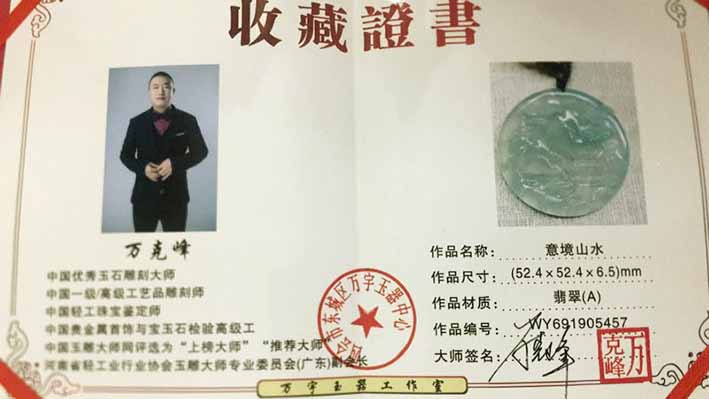 收藏證書
万克峰
中国优秀玉石雕刻大师
中国一级/高级工艺品雕刻师
中国轻工珠宝鉴定师
中国贵金属首饰与宝玉石检验高级工
中国玉雕大师网评选为“上榜大师”“推荐大师”
河南省轻工业行业协会玉雕大师专业委员会(广东)副会长
作品名称： 意境山水
作品尺寸： (52.4×52.4×6.5)mm
作品材质： 翡翠(A)
作品编号： WY691905457
大师签名： 万克峰
万克峰
会市东城区万宇玉器中心
万宇玉器工作室